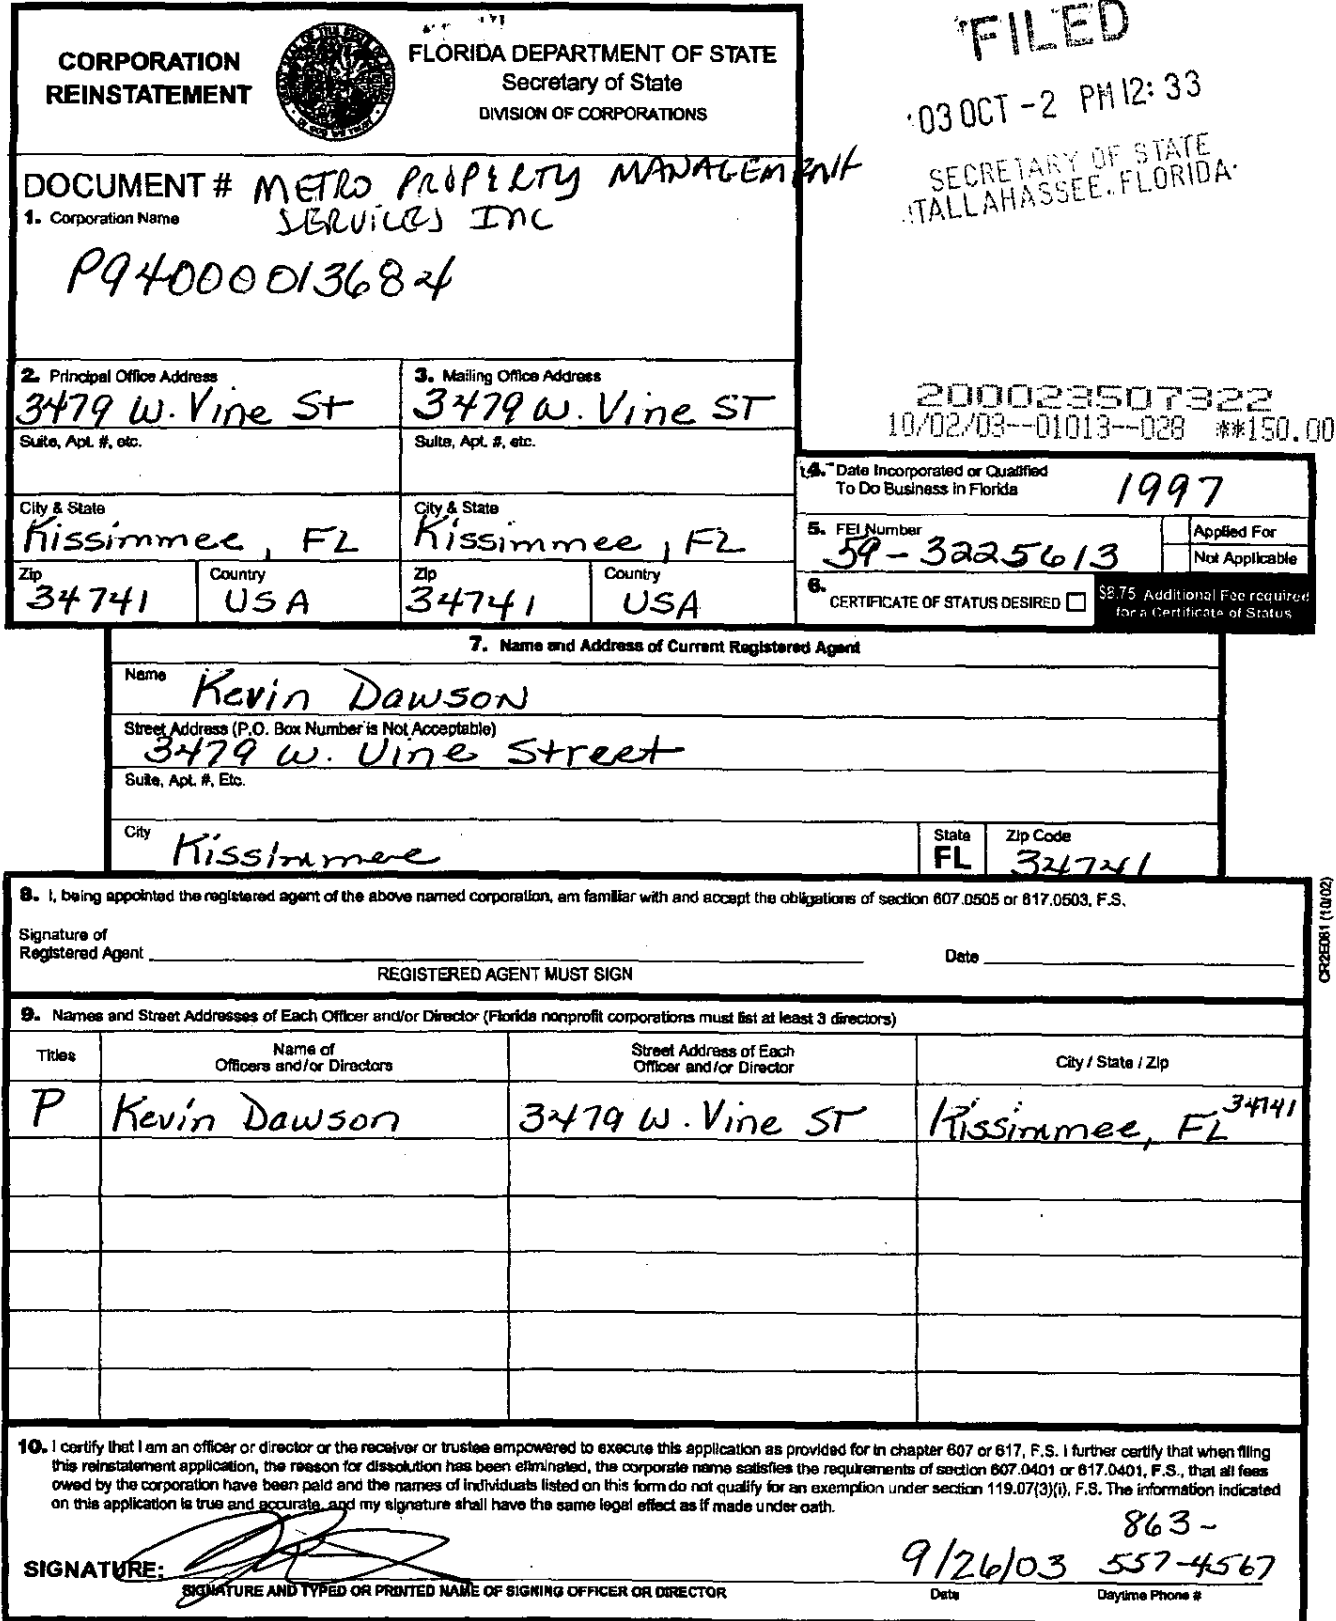 CORPORATION
REINSTATEMENT
FLORIDA DEPARTMENT OF STATE
Secretary of State
DIVISION OF CORPORATIONS
FILED
03 OCT -2 PM 12: 33
SECRETARY OF STATE
TALLAHASSEE, FLORIDA
DOCUMENT # METRO PROPERTY MANAGEMENT
1. Corporation Name SERVICES INC
P94000013684
2. Principal Office Address
3479 W. Vine St
Suite, Apt. #, etc.
3. Mailing Office Address
3479 W. Vine ST
Suite, Apt. #, etc.
200023507322
10/02/03--01013--028 **150.00
City & State
Kissimmee, FL
City & State
Kissimmee, FL
Zip
34741
Country
USA
Zip
34741
Country
USA
4. Date Incorporated or Qualified
To Do Business in Florida 1997
5. FEI Number
59-3225613
Applied For
Not Applicable
6. CERTIFICATE OF STATUS DESIRED
$8.75 Additional Fee required
for a Certificate of Status
7. Name and Address of Current Registered Agent
Name Kevin Dawson
Street Address (P.O. Box Number is Not Acceptable)
3479 W. Vine Street
Suite, Apt. #, Etc.
City Kissimmee
State
FL
Zip Code
34741
8. I, being appointed the registered agent of the above named corporation, am familiar with and accept the obligations of section 607.0505 or 617.0503, F.S.
Signature of
Registered Agent
Date
REGISTERED AGENT MUST SIGN
CR2E081 (10/02)
9. Names and Street Addresses of Each Officer and/or Director (Florida nonprofit corporations must list at least 3 directors)
Titles
Name of
Officers and/or Directors
Street Address of Each
Officer and/or Director
City / State / Zip
P Kevin Dawson 3479 W. Vine ST Kissimmee, FL 34741
10. I certify that I am an officer or director or the receiver or trustee empowered to execute this application as provided for in chapter 607 or 617, F.S. I further certify that when filing
this reinstatement application, the reason for dissolution has been eliminated, the corporate name satisfies the requirements of section 607.0401 or 617.0401, F.S., that all fees
owed by the corporation have been paid and the names of individuals listed on this form do not qualify for an exemption under section 119.07(3)(i), F.S. The information indicated
on this application is true and accurate, and my signature shall have the same legal effect as if made under oath.
863-
SIGNATURE: 9/26/03 557-4567
SIGNATURE AND TYPED OR PRINTED NAME OF SIGNING OFFICER OR DIRECTOR
Date
Daytime Phone #